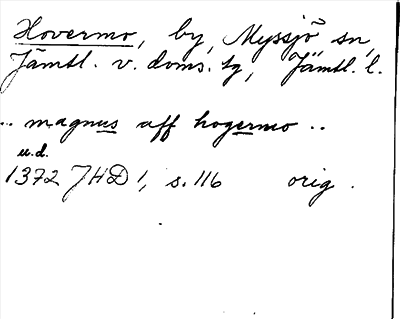 Hovermo, by, Myssjö sn,
Jämtl. v. doms. tg, Jämtl. l.
.. magnus aff hogermo ..
u.d.
1372 JHD 1, s. 116 orig.